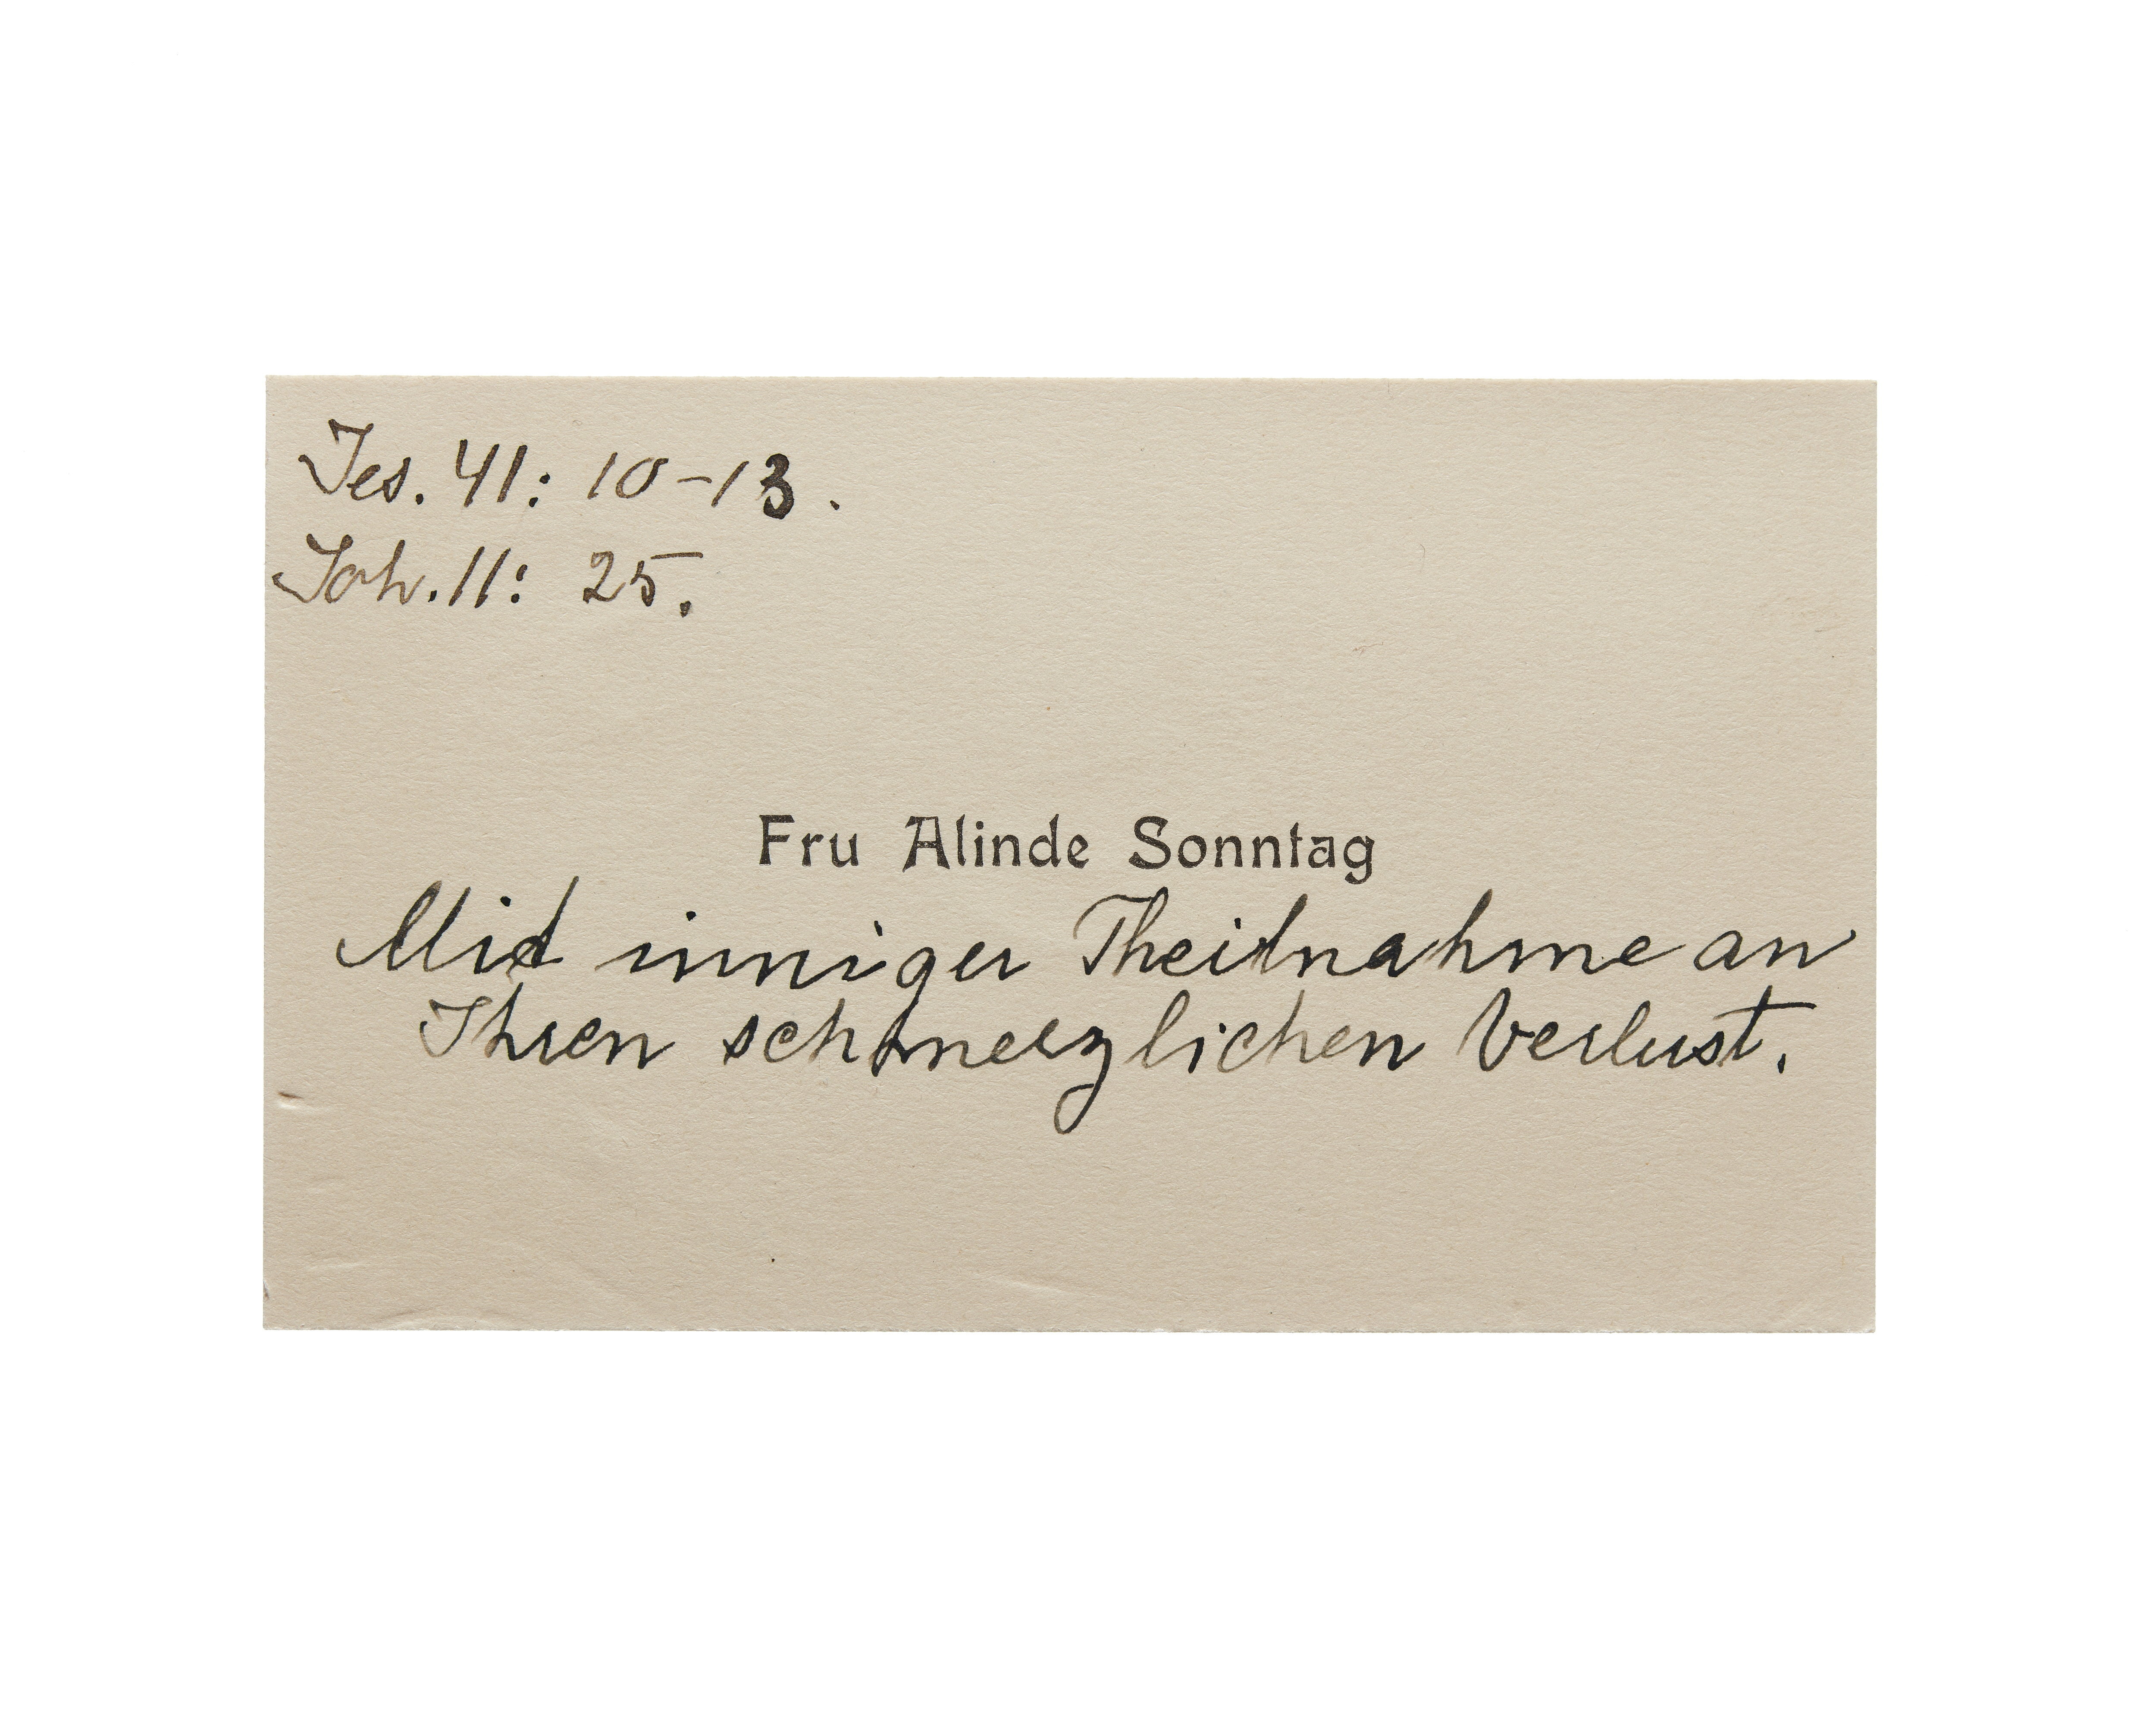 Jes. 41: 10-13.
Joh. 11: 25.
Fru Alinde Sonntag
Mid inniger Theilnahme an
Ihren schmerzlichen Verlust.